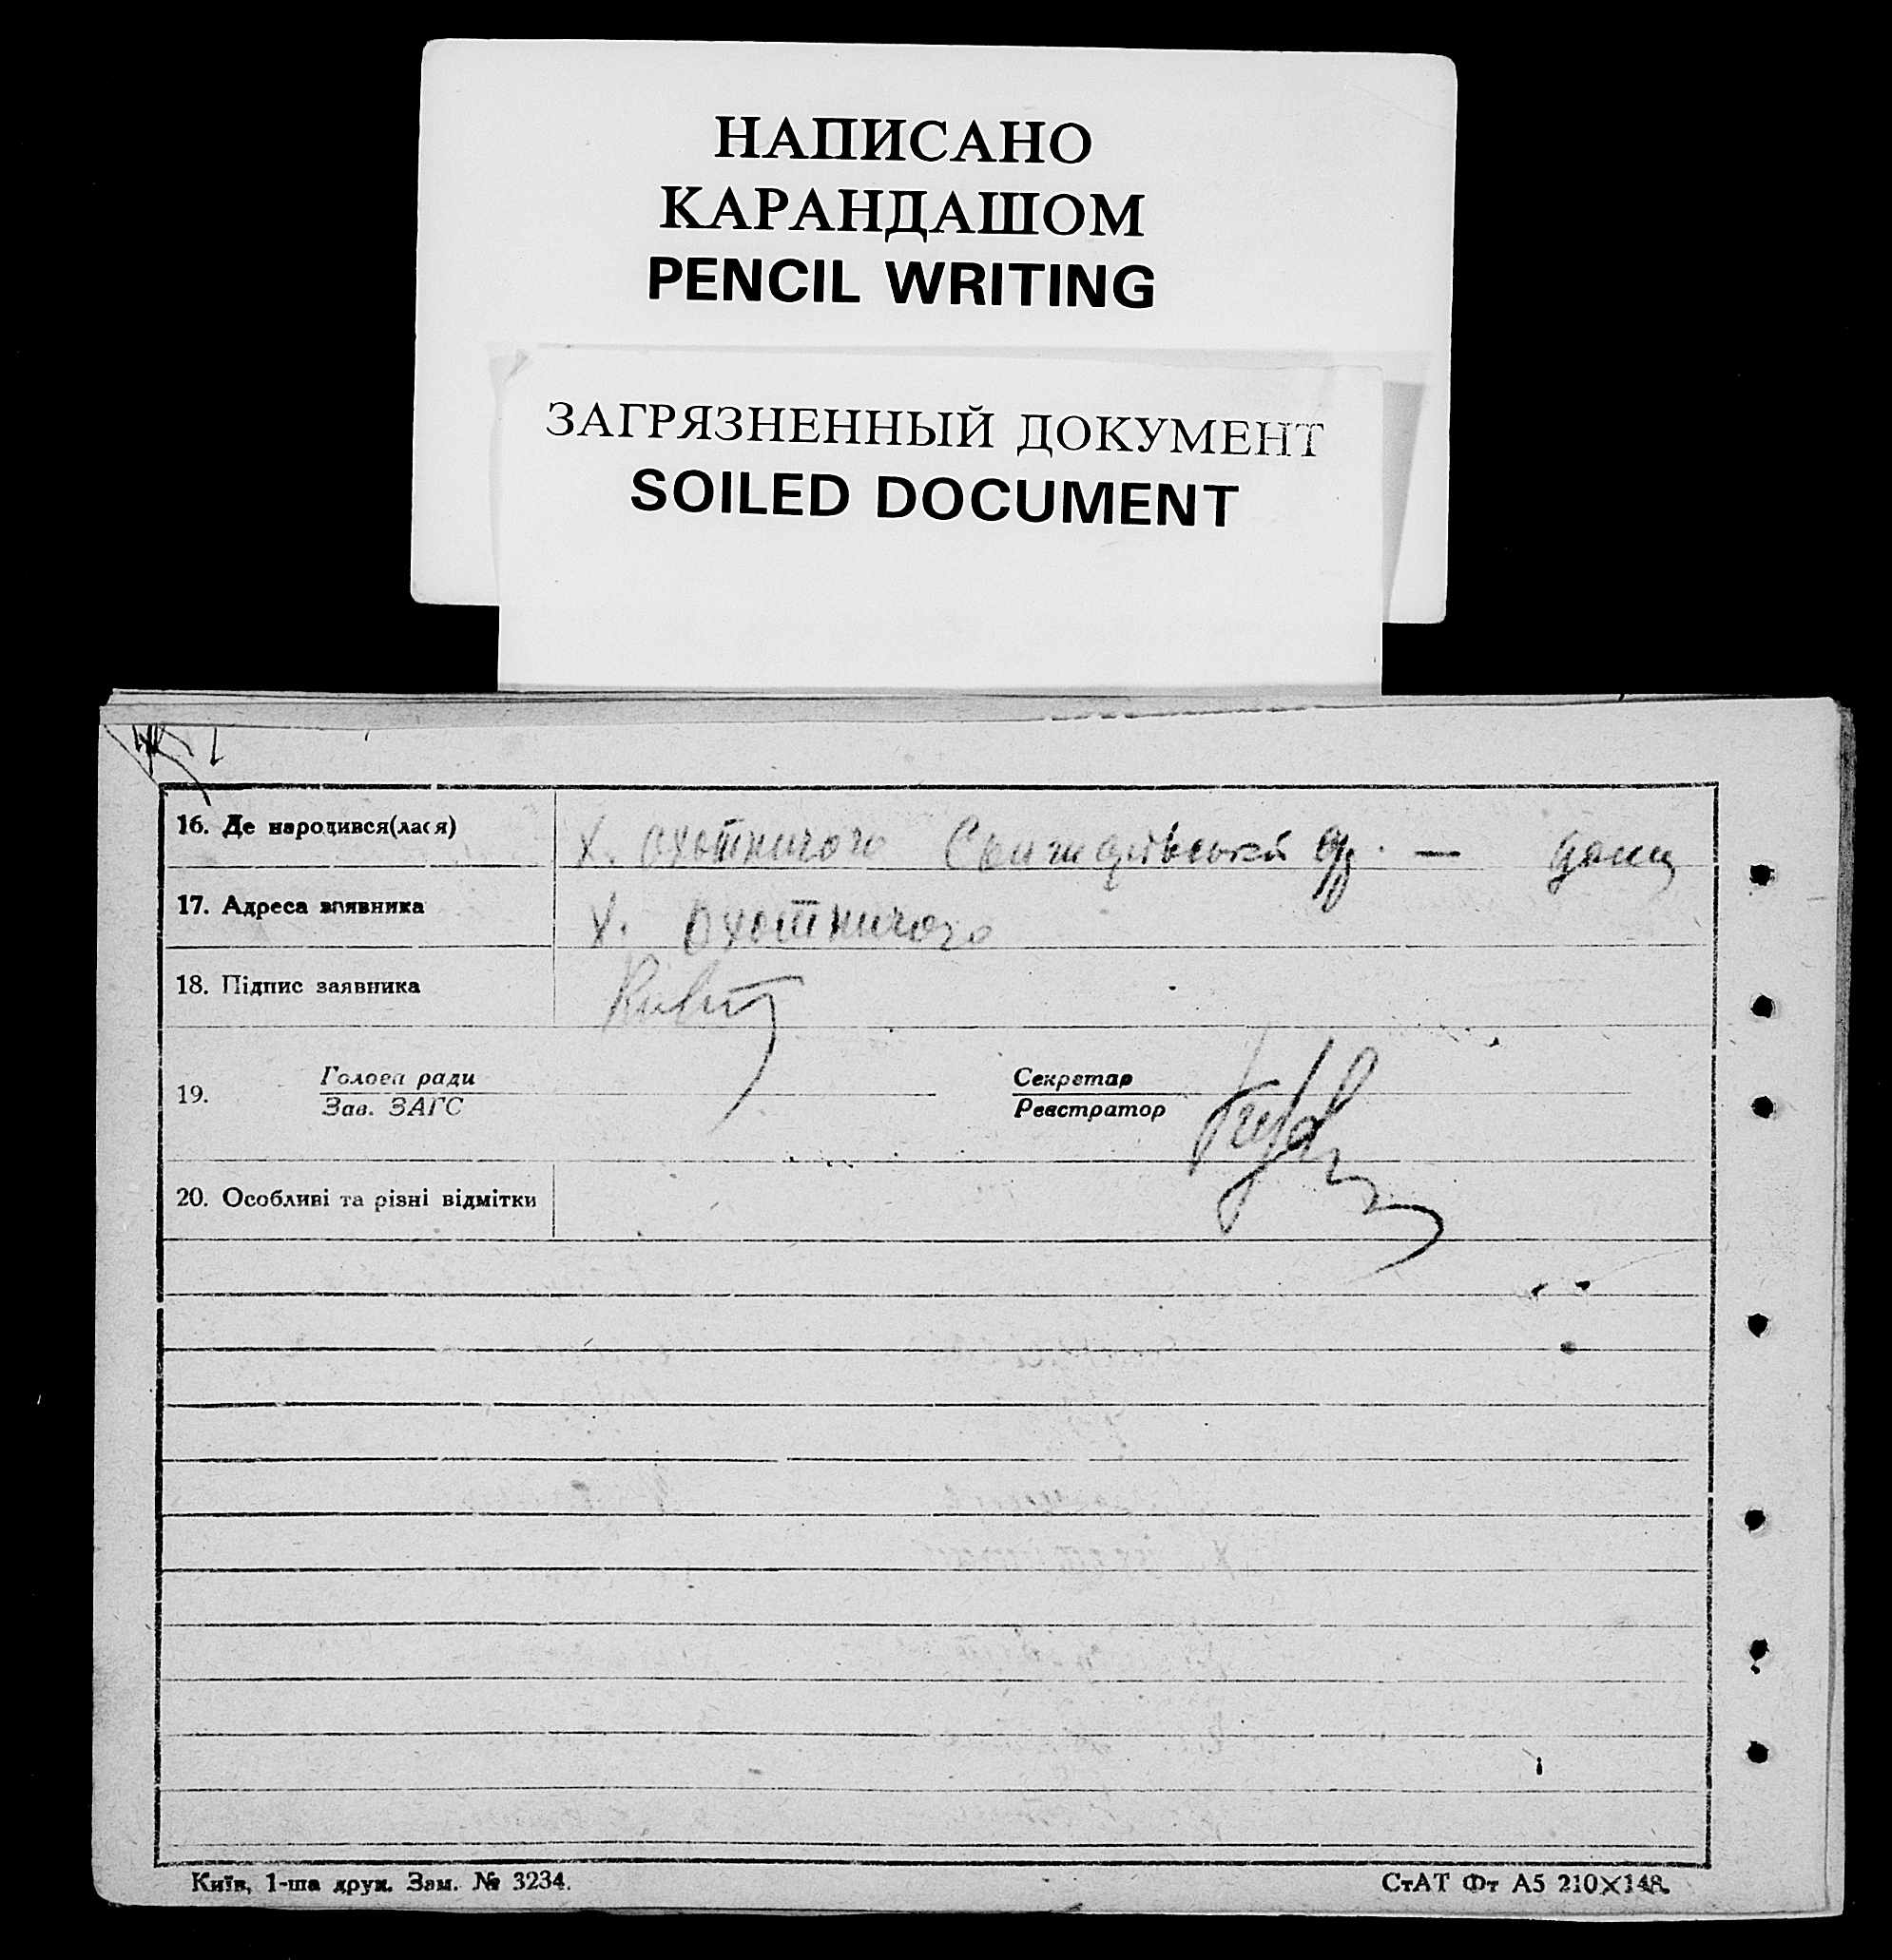 НАПИСАНО
КАРАНДАШОМ
PENCIL WRITING
ЗАГРЯЗНЕННЫЙ ДОКУМЕНТ
SOILED DOCUMENT
16. Де народився(лася) х. Охотничого
17. Адреса заявника х. Охотничого
18. Підпис заявника
19. Голова ради Секретар
Зав. ЗАГС Реєстратор
20. Особливі та різні відмітки
Київ, 1-ша друк. Зам. № 3234. СтАТ Фт А5 210×148.